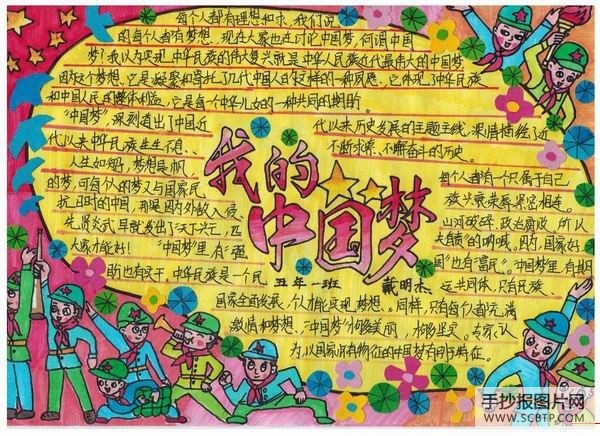 每个人都有理想和追求,我们说
的每个人都有梦想,现在大家也在讨论中国梦,何谓中国
梦?我以为实现中华民族的伟大复兴就是中华人民族近代最伟大的中国梦
因为这个梦想,它是凝聚和寄托了几代中国人的这样的一种夙愿,它体现了中华民族
和中国人民的整体利益,它是每个中华儿女的一种共同的期盼。
"中国梦"深刻道出了中国近
代以来历史发展的主题主线,深情描绘了近
代以来中华民族生生不息、
不断求索、不懈奋斗的历史。
人生如船,梦想是帆
每个人都有一个只属于自己
的梦,可每个人的梦又与国家民
族兴衰荣辱紧密相连。
抗日时的中国,那是因为外敌入侵、
山河破碎、政治腐败,所以
先贤
早就发出了"天下兴亡,匹
夫有责"的呐喊。因为,国家好
大家才能好!
"中国梦里,有"强
国"也有"富民"。"中国梦"里,有期
盼也有实干,中华民族是一个
运共同体,只有民族、
国家全面发展,个人才能实现梦想、。同样,只有每个人都充满
激情和梦想、"中国梦"才够美丽,才够坚实。专家认
为,以国家
特征的中国梦有明
特征。
我的
中国梦
五年一班
戴明杰
手抄报图片网
WWW.SCBTP.COM